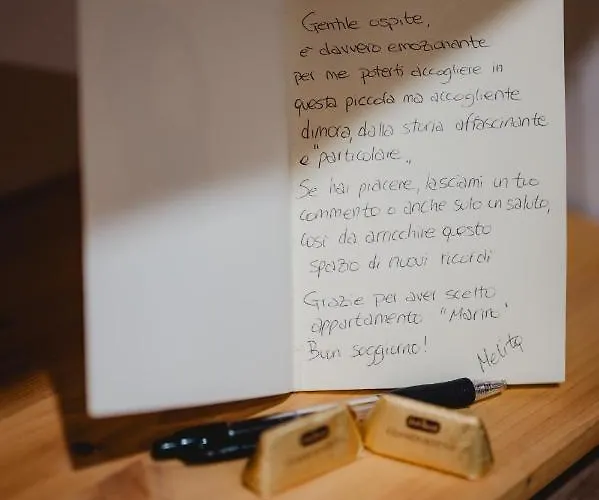 Gentile ospite,
e' davvero emozionante
per me poterti accogliere in
questa piccola ma accogliente
dimora, dalla storia affascinante
e "particolare"
Se hai piacere, lasciami un tuo
commento o anche solo un saluto,
così da arricchire questo
spazio di nuovi ricordi
Grazie per aver scelto
appartamento "Marin".
Buon soggiorno!
Melita